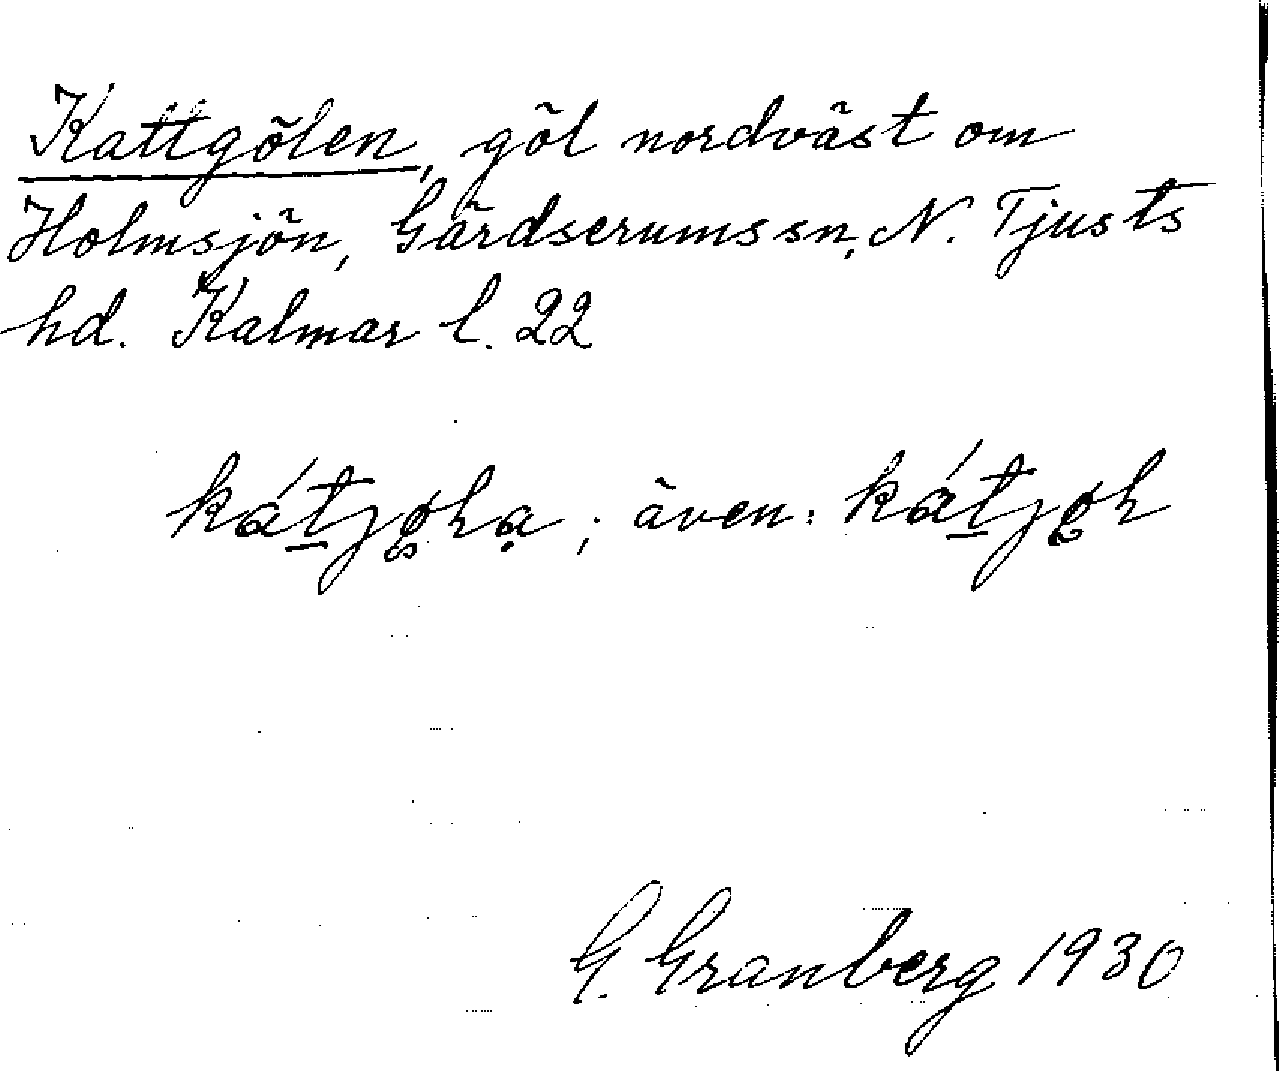 Kattgölen, göl nordväst om
Holmsjön, Gärdserums sn, N. Tjusts
hd. Kalmar l. 22
även:
G. Granberg 1930